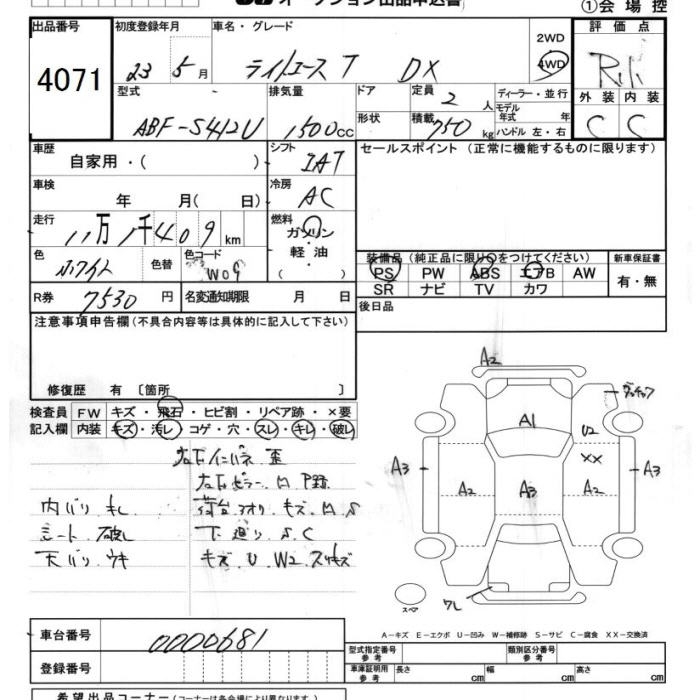 オークション出品申込書
①会場控
出品番号 初度登録年月 車名・グレード 2WD 4WD 評価点
4071 23 5月 ライトエース T DX
型式 排気量 ドア 定員 2人 ディーラー・並行 外装 内装
ABF-S412U 1500cc 形状 積載 750kg モデル年式 年 ハンドル 左・右 C C
車歴 自家用・( ) シフト IAT セールスポイント (正常に機能するものに限ります)
車検 年 月( 日) 冷房 AC
走行 11万1千409km 燃料 ガソリン 軽油 ( )
色 ホワイト 色替 色コード W09
装備品 (純正品に限り○をつけてください) 新車保証書
PS PW ABS エアB AW 有・無
SR ナビ TV カワ
R券 7530円 名変通知期限 月 日 後日品
注意事項申告欄(不具合内容等は具体的に記入して下さい)
修復歴 有 〔箇所 〕
検査員 FW キズ・飛石・ヒビ割・リペア跡・×要
記入欄 内装 キズ・汚レ・コゲ・穴・スレ・キレ・破レ
内バリ キレ 荷台 アオリ キズ
シート 破レ 下廻り S.C
天バリ ウキ キズ U W2 スリキズ
A2
A1 U2
XX
A3 A2 A3 A2 A3
ワレ
スペア
A-キズ E-エクボ U-凹み W-補修跡 S-サビ C-腐食 XX-交換済
車台番号 0000681
登録番号
型式指定番号 参考 類別区分番号 参考
車庫証明用 参考 長さ cm 幅 cm 高さ cm
希望出品コーナー(コーナーは各会場により異なります)